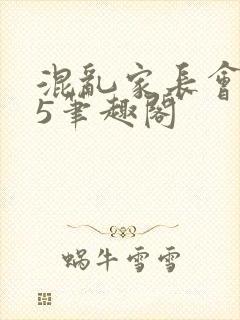 混亂家長會
5筆趣閣
蝸牛雪雪